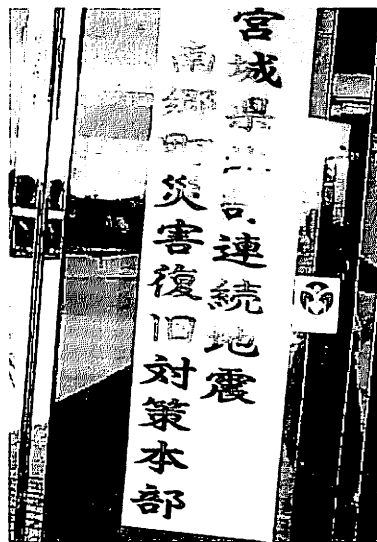 宮城県北部連続地震
南郷町災害復旧対策本部